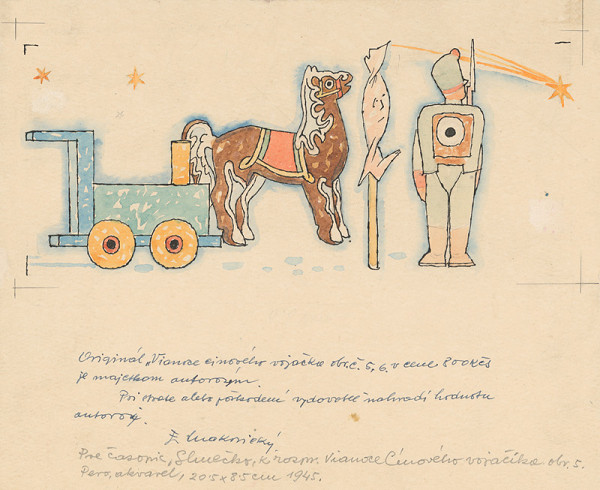 Originál „Vianoce cínového vojačka obr. č. 5, 6. v cene 800 Kčs
je majetkom autorovým.
Pri strate alebo poškodení vydavateľ nahradí hodnotu
autorovi.
Pre časopis „Slniečko", k rozpr. Vianoce Cínového vojačika obr. 5.
Pero, akvarel, 20 5 x 8 5 cm 1945.